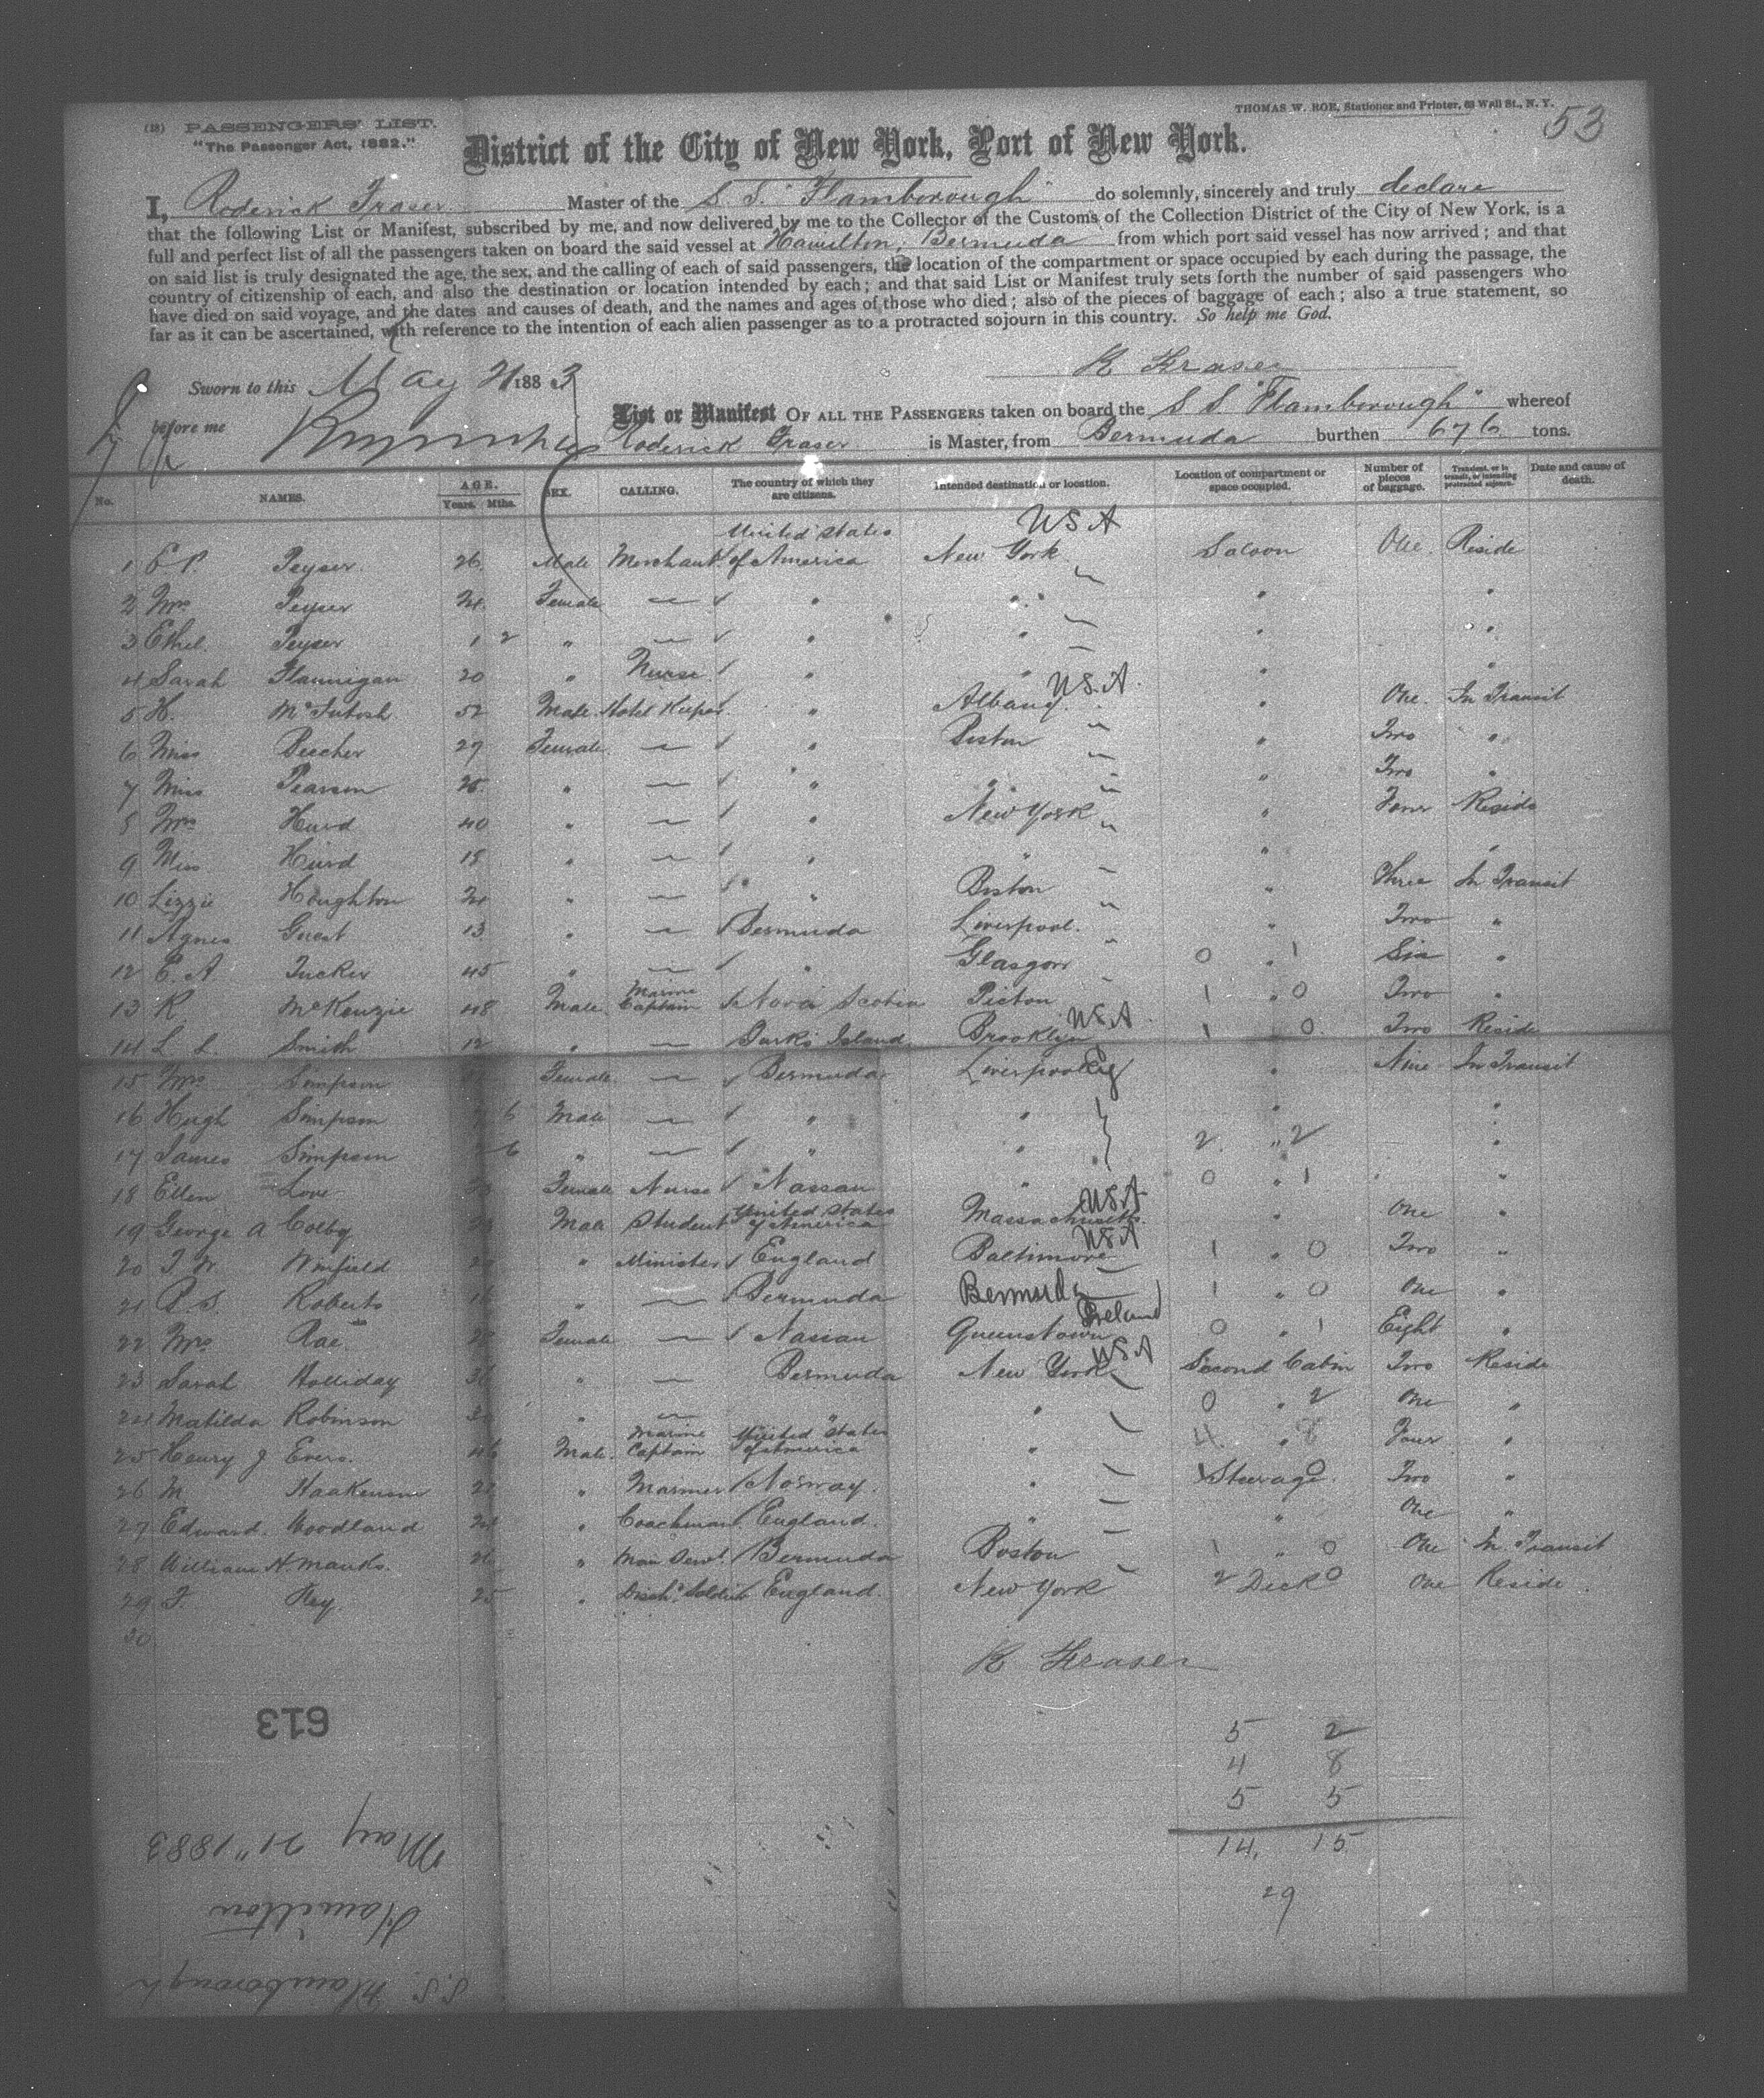 THOMAS W. ROE, Stationer and Printer, 63 Wall St., N. Y.
53
(18) PASSENGERS' LIST.
"The Passenger Act, 1882."
District of the City of New York, Port of New York.
I, Roderick Fraser Master of the S. S. "Flamborough" do solemnly, sincerely and truly declare
that the following List or Manifest, subscribed by me, and now delivered by me to the Collector of the Customs of the Collection District of the City of New York, is a
full and perfect list of all the passengers taken on board the said vessel at Hamilton, Bermuda from which port said vessel has now arrived; and that
on said list is truly designated the age, the sex, and the calling of each of said passengers, the location of the compartment or space occupied by each during the passage, the
country of citizenship of each, and also the destination or location intended by each; and that said List or Manifest truly sets forth the number of said passengers who
have died on said voyage, and the dates and causes of death, and the names and ages of those who died; also of the pieces of baggage of each; also a true statement, so
far as it can be ascertained, with reference to the intention of each alien passenger as to a protracted sojourn in this country. So help me God.
R Fraser
Sworn to this May 21 1883
before me
List or Manifest OF ALL THE PASSENGERS taken on board the S S "Flamborough" whereof
Roderick Fraser is Master, from Bermuda burthen 676 tons.
No. NAMES. AGE. Years. Mths. SEX. CALLING. The country of which they are citizens. Intended destination or location. Location of compartment or space occupied. Number of pieces of baggage. Transient, or in transit, or intending protracted sojourn. Date and cause of death.
1 E P. Peyser 26 Male Merchant United States of America New York USA Saloon One Reside
2 Mrs Peyser 24 Female — " " " "
3 Ethel Peyser 1 2 " — " " " "
4 Sarah Flannigan 20 " Nurse " " " "
5 H. McIntosh 52 Male Hotel Keeper " Albany USA " One In Transit
6 Miss Beecher 29 Female — " Boston " Two "
7 Miss Pearson 25 " — " " " Two "
8 Mrs Hurd 40 " — " New York " Four Reside
9 Miss Hurd 18 " — " " " "
10 Lizzie Houghton 24 " — " Boston " Three In Transit
11 Agnes Guest 13 " — Bermuda Liverpool " Two "
12 E. A Tucker 45 " — " Glasgow 0 " 1 Six "
13 R McKenzie 48 Male Marine Captain Nova Scotia Picton 1 " 0 Two "
14 L L Smith 12 " — Turks Island Brooklyn USA 1 0 Two Reside
15 Mrs Simpson Female — Bermuda Liverpool Eg " Nine In Transit
16 Hugh Simpson 6 Male — " " " "
17 James Simpson 6 " — " " 2 " 2 "
18 Ellen Love Female Nurse Nassau " 0 " 1 "
19 George A Colby Male Student United States of America Massachusetts USA " One "
20 J W Winfield " Minister England Baltimore USA 1 " 0 Two "
21 P S. Roberts " — Bermuda Bermuda 1 " 0 One "
22 Mrs Rae Female — Nassau Queenstown Ireland 0 " 1 Eight "
23 Sarah Holliday " — Bermuda New York USA Second Cabin Two Reside
24 Matilda Robinson " — " " 0 " 2 One "
25 Henry J Evers. 46 Male Marine Captain United States of America " 4 " 8 Four "
26 M Haakenson " Mariner Norway " Steerage Two "
27 Edward Woodland " Coachman England " " One "
28 William H. Manks. " Man Servt Bermuda Boston 1 " 0 One In Transit
29 F. Hey 25 " Disch. Soldier England New York 2 Deck 0 One Reside
30
R Fraser
613
5 2
4 8
5 5
14. 15
29
May 21" 1883
Hamilton
S.S. Flamborough